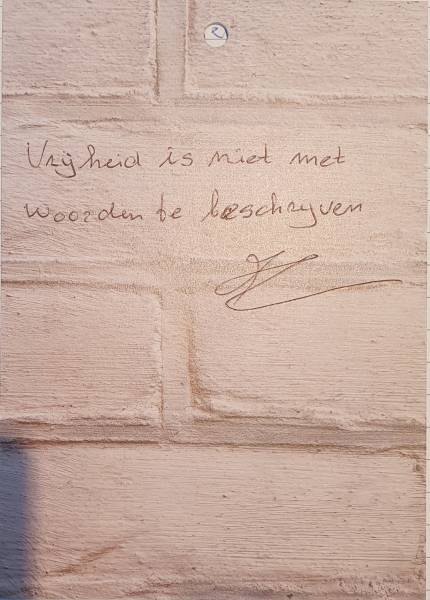 2
Vrijheid is niet met
woorden te beschrijven